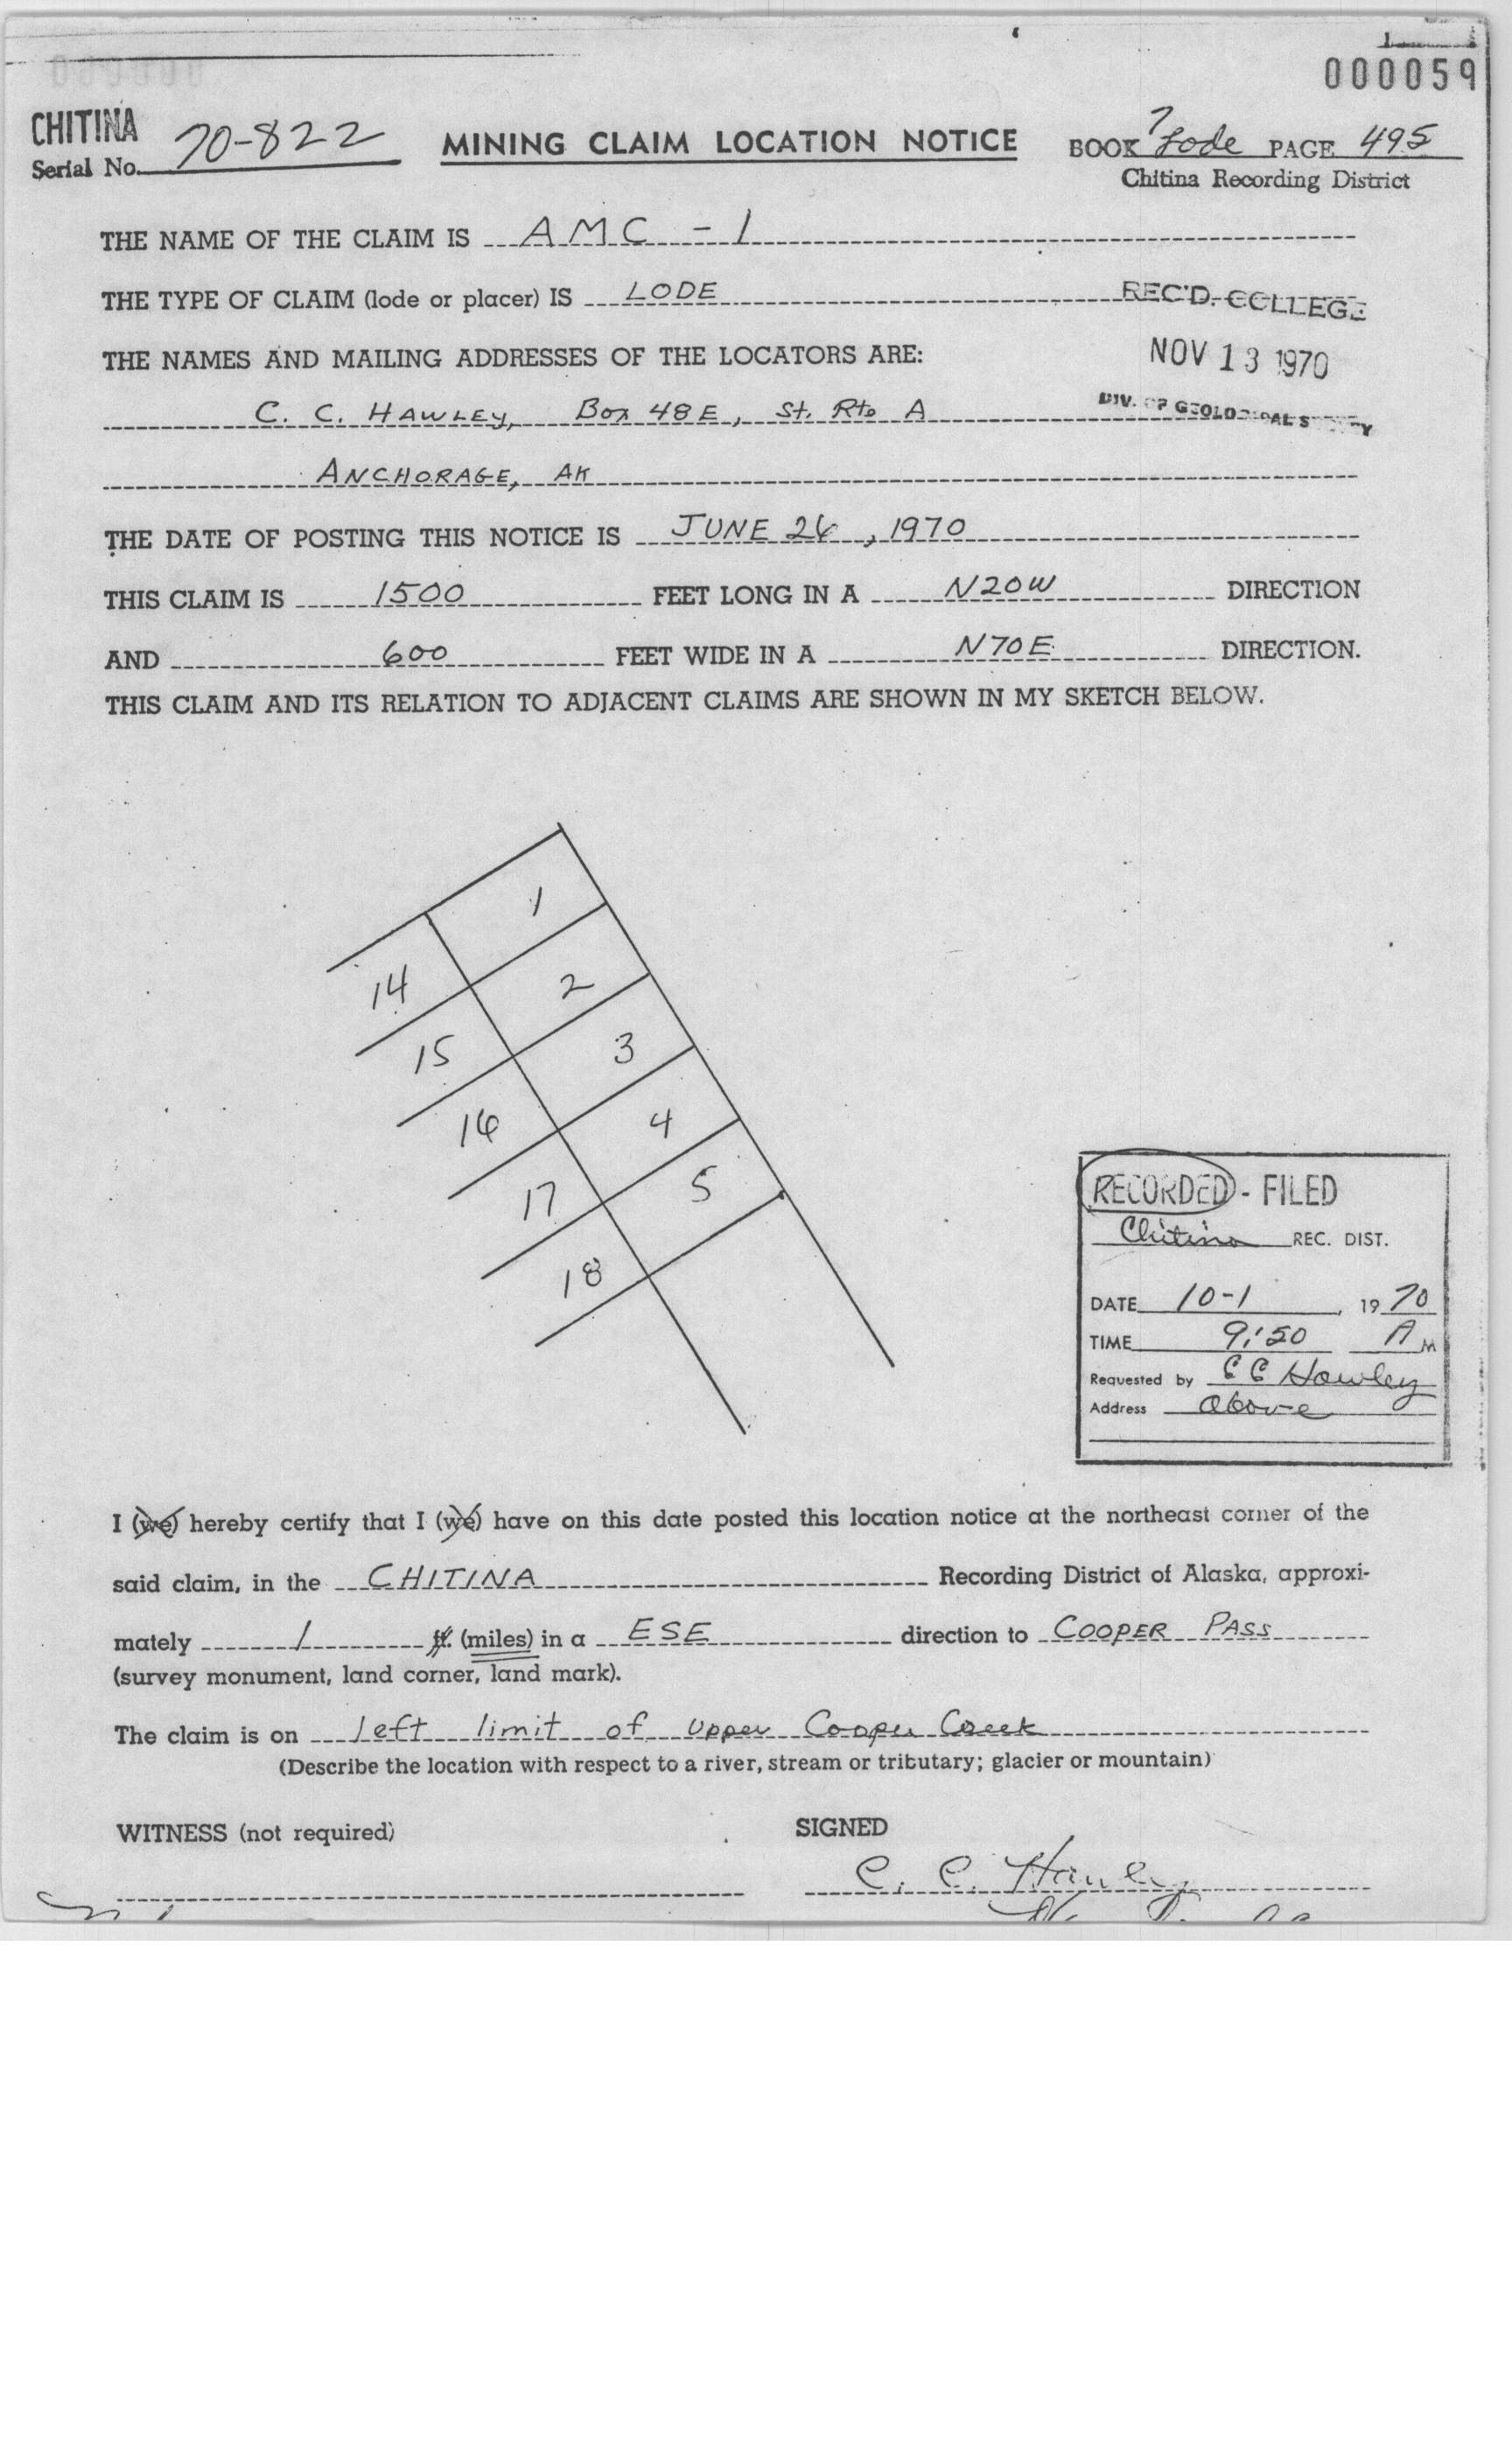 000059
CHITINA
Serial No. 70-822 MINING CLAIM LOCATION NOTICE BOOK 7 Lode PAGE 495
Chitina Recording District
THE NAME OF THE CLAIM IS AMC - 1
THE TYPE OF CLAIM (lode or placer) IS LODE
REC'D. COLLEGE
THE NAMES AND MAILING ADDRESSES OF THE LOCATORS ARE:
NOV 13 1970
C. C. HAWLEY, Box 48E, St. Rte A
DIV. OF GEOLOGICAL SURVEY
ANCHORAGE, AK
THE DATE OF POSTING THIS NOTICE IS JUNE 26, 1970
THIS CLAIM IS 1500 FEET LONG IN A N20W DIRECTION
AND 600 FEET WIDE IN A N70E DIRECTION.
THIS CLAIM AND ITS RELATION TO ADJACENT CLAIMS ARE SHOWN IN MY SKETCH BELOW.
1
14
2
15
3
16
4
17
5
18
RECORDED - FILED
Chitina REC. DIST.
DATE 10-1, 1970
TIME 9:50 A M
Requested by C C Hawley
Address above
I (we) hereby certify that I (we) have on this date posted this location notice at the northeast corner of the
said claim, in the CHITINA Recording District of Alaska, approxi-
mately 1 ft. (miles) in a ESE direction to COOPER PASS
(survey monument, land corner, land mark).
The claim is on left limit of upper Cooper Creek
(Describe the location with respect to a river, stream or tributary; glacier or mountain)
WITNESS (not required) SIGNED
C. C. Hawley